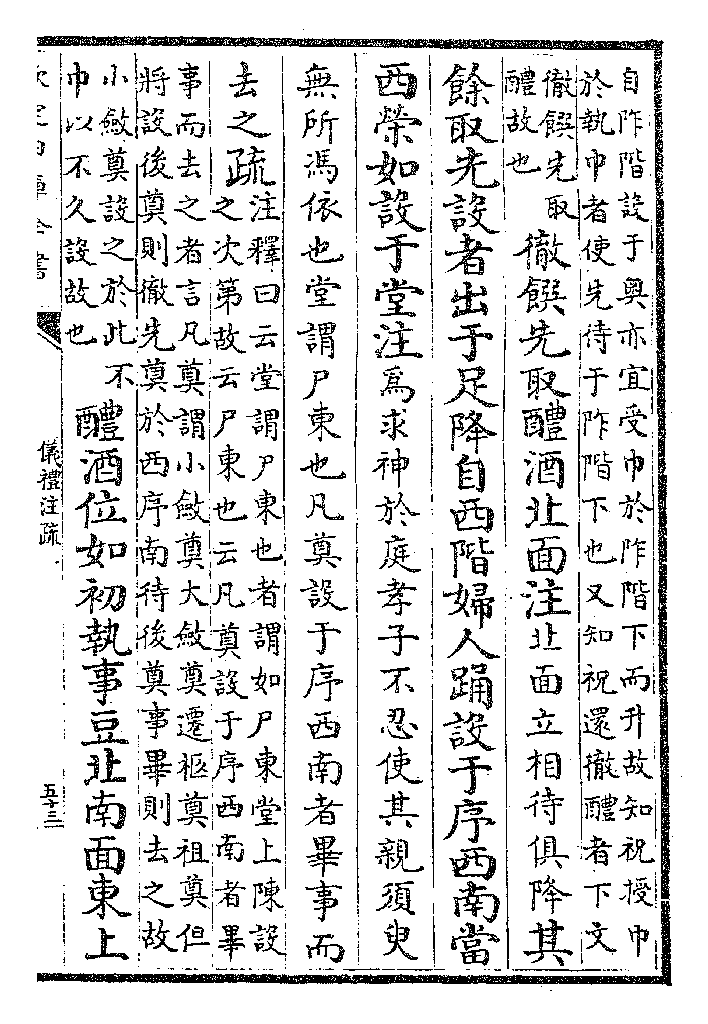 自阼階設于奧亦宜受巾於阼階下而升故知祝授巾
於執巾者使先待于阼階下也又知祝還徹醴者下文
徹饌先取
醴故也
徹饌先取醴酒北面注北面立相待俱降其
餘取先設者出于足降自西階婦人踊設于序西南當
西榮如設于堂注爲求神於庭孝子不忍使其親須臾
無所馮依也堂謂尸東也凡奠設于序西南者畢事而
去之疏
注釋曰云堂謂尸東也者謂如尸東堂上陳設
之次第故云尸東也云凡奠設于序西南者畢
事而去之者言凡奠謂小斂奠大斂奠遷柩奠祖奠但
將設後奠則徹先奠於西序南待後奠事畢則去之故
小斂奠設之於此不
巾以不久設故也
醴酒位如初執事豆北南面東上
欽定四庫全書
儀禮注疏
五十三